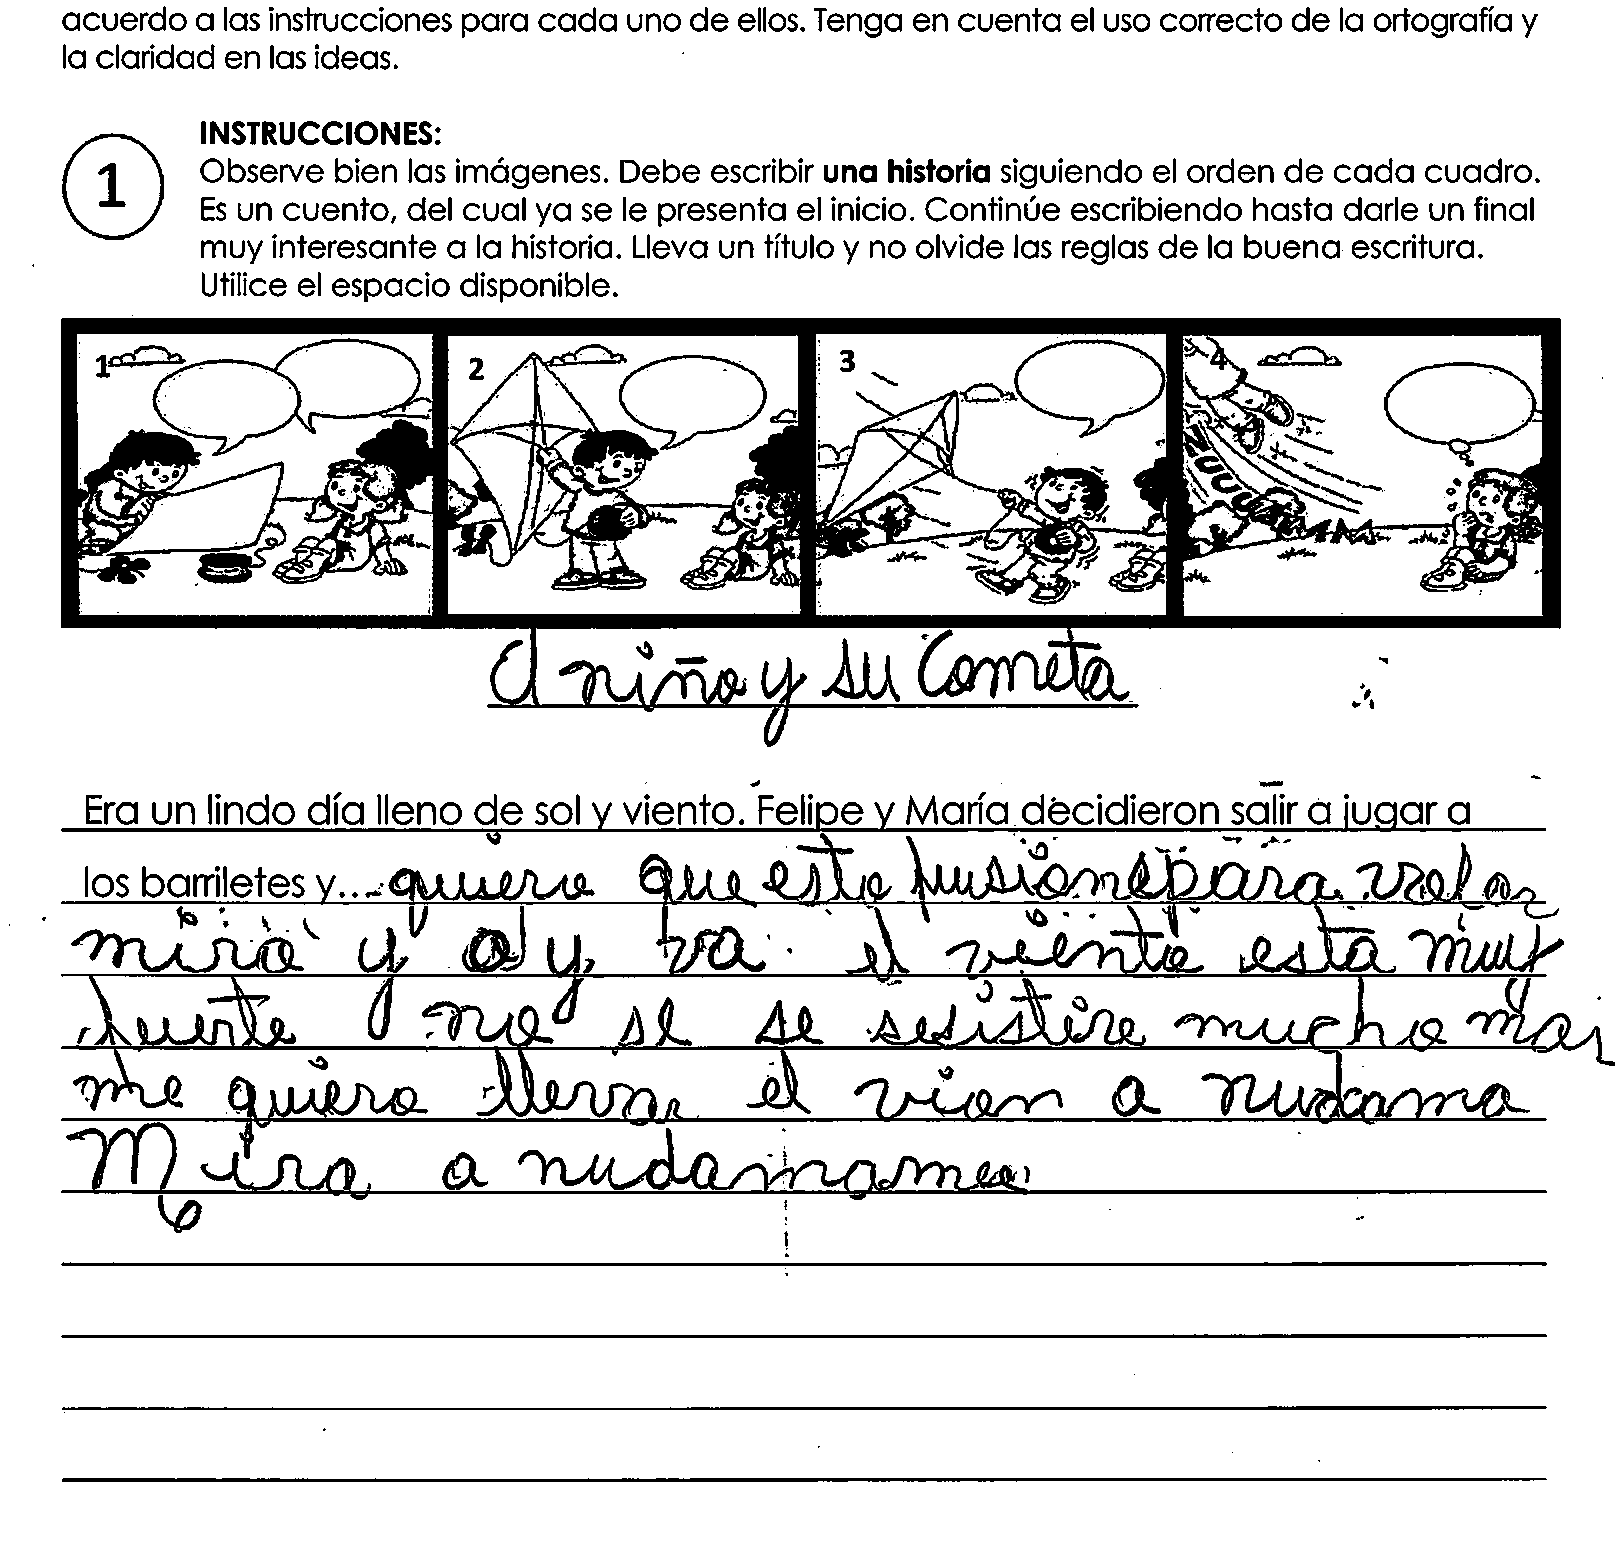 acuerdo a las instrucciones para cada uno de ellos. Tenga en cuenta el uso correcto de la ortografía y
la claridad en las ideas.
INSTRUCCIONES:
1
Observe bien las imágenes. Debe escribir una historia siguiendo el orden de cada cuadro.
Es un cuento, del cual ya se le presenta el inicio. Continúe escribiendo hasta darle un final
muy interesante a la historia. Lleva un título y no olvide las reglas de la buena escritura.
Utilice el espacio disponible.
1 2 3 4
El niño y su Cometa
Era un lindo día lleno de sol y viento. Felipe y María decidieron salir a jugar a
los barriletes y... quiero que esto para volar
mira y va el viento esta muy
fuerte no se se sesistire mucho mas
me quiero llevar el vion a nudama
Mira a